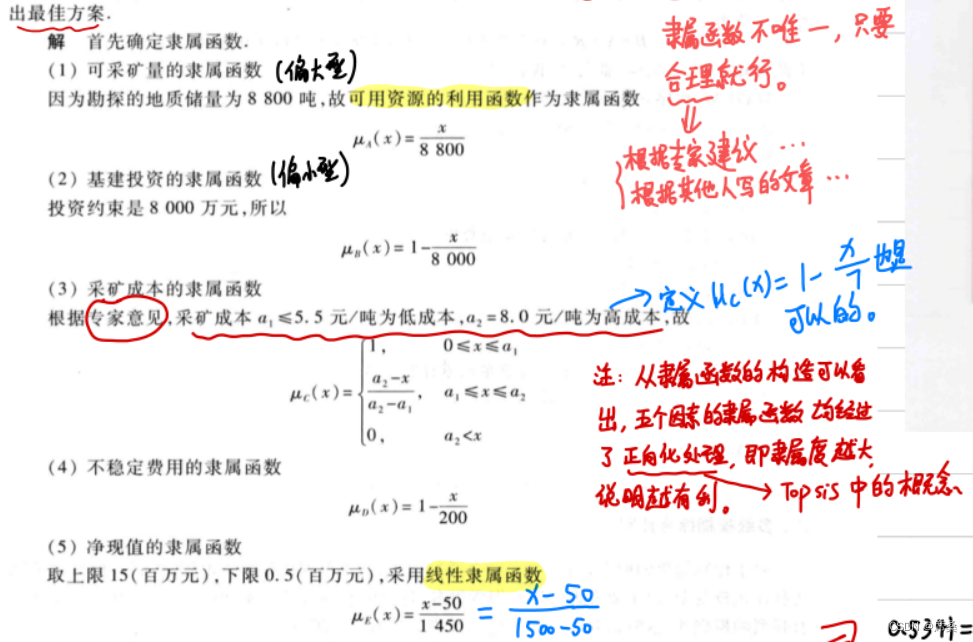 出最佳方案.
解 首先确定隶属函数.
(1) 可采矿量的隶属函数 (偏大型)
因为勘探的地质储量为 8 800 吨,故可用资源的利用函数作为隶属函数
μA(x)=x/8 800
(2) 基建投资的隶属函数 (偏小型)
投资约束是 8 000 万元,所以
μB(x)=1-x/8 000
(3) 采矿成本的隶属函数
根据专家意见,采矿成本 a1≤5.5 元/吨为低成本,a2=8.0 元/吨为高成本,故
μC(x)={1, 0≤x≤a1
(a2-x)/(a2-a1), a1≤x≤a2
0, a2<x
(4) 不稳定费用的隶属函数
μD(x)=1-x/200
(5) 净现值的隶属函数
取上限 15(百万元),下限 0.5(百万元),采用线性隶属函数
μE(x)=(x-50)/1 450 = (x-50)/(1500-50)
隶属函数不唯一,只要
合理就行。
⇓
根据专家建议 …
根据其他人写的文章 …
→定义 μC(x)=1-x/7 也是
可以的。
注: 从隶属函数的构造可以看
出,五个因素的隶属函数均经过
了正向化处理,即隶属度越大,
说明越有利。 → Topsis 中的概念